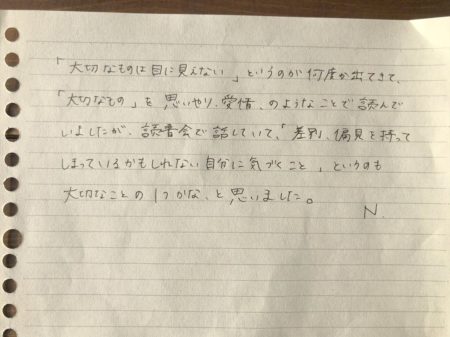 「大切なものは目に見えない」というのが何度か出てきて、
「大切なもの」を思いやり、愛情、のようなことで読んで
いましたが、読書会で話していて、「差別、偏見を持って
しまっているかもしれない自分に気づくこと」というのも
大切なことの1つかな、と思いました。
N.